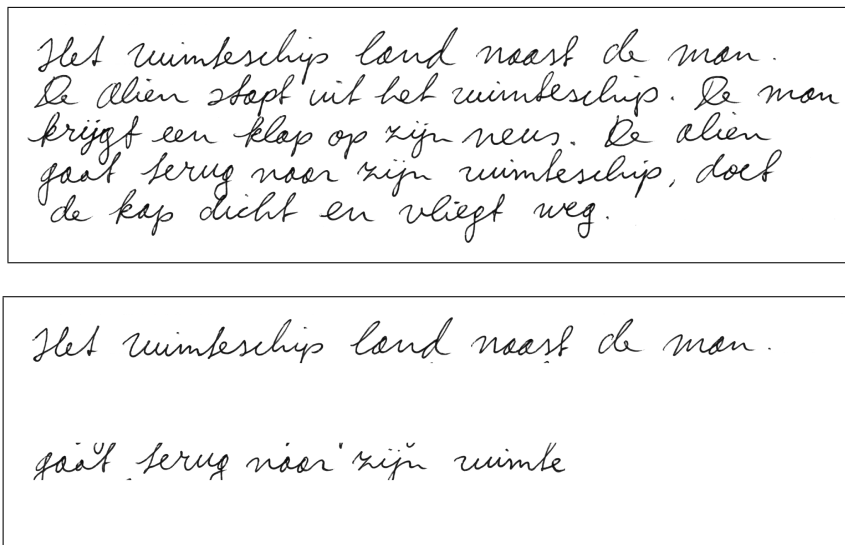 Het ruimteschip land naast de man.
De alien stapt uit het ruimteschip. De man
krijgt een klap op zijn neus. De alien
gaat terug naar zijn ruimteschip, doet
de kap dicht en vliegt weg.
Het ruimteschip land naast de man.
gaat terug naar zijn ruimte